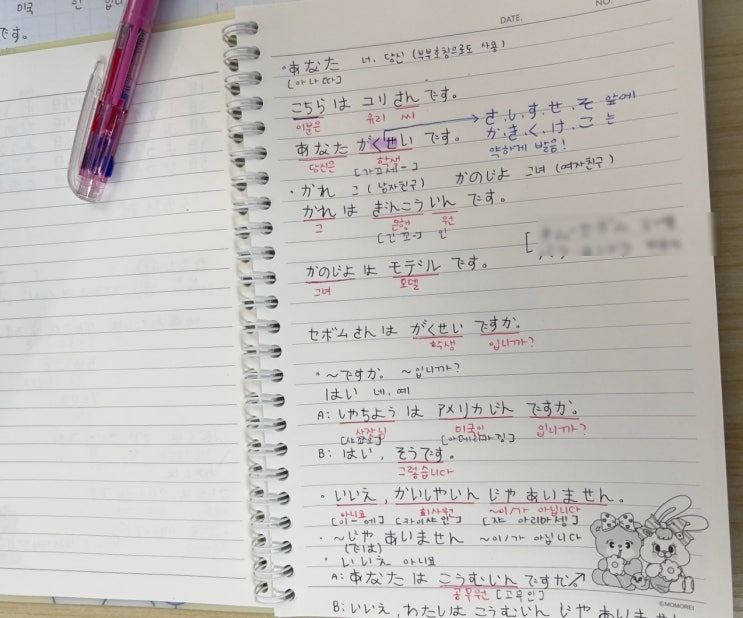 미국 인 입니
です。
DATE.
NO.
・あなた 너, 당신 (부부호칭으로도 사용)
[아나따]
こちらは ユリさん です。
이분은 유리 씨
あなた がくせい です。 → さ.し.す.せ.そ 앞에
か.き.く.け.こ 는
약하게 발음!
당신은 학생
[가끄세-]
・かれ 그 (남자친구) かのじよ 그녀 (여자친구)
かれ は ぎんこういん です。
그 은행 원
[긴꼬-] 인
かのじよ は モデル です。
그녀 모델
セボムさんは がくせい ですか.
학생 입니까?
・〜ですか. 〜입니까?
はい 네, 예
A: しゃちよう は アメリカじん ですか.
사장님 미국인 입니까?
[샤쬬-] [아메리까징]
B: はい, そうです.
그렇습니다
・いいえ, かいしゃいん じゃ あいません.
아니요 회사원 ~이/가 아닙니다
[이-에] [카이샤인] [쟈 아리마셍]
・〜じゃ あいません ~이/가 아닙니다
(では)
・いいえ 아니요
A: あなた は こうむいん ですか↗
공무원 [고무인]
B: いいえ, わたしは こうむいん じゃ あいませ
©MOMOREI